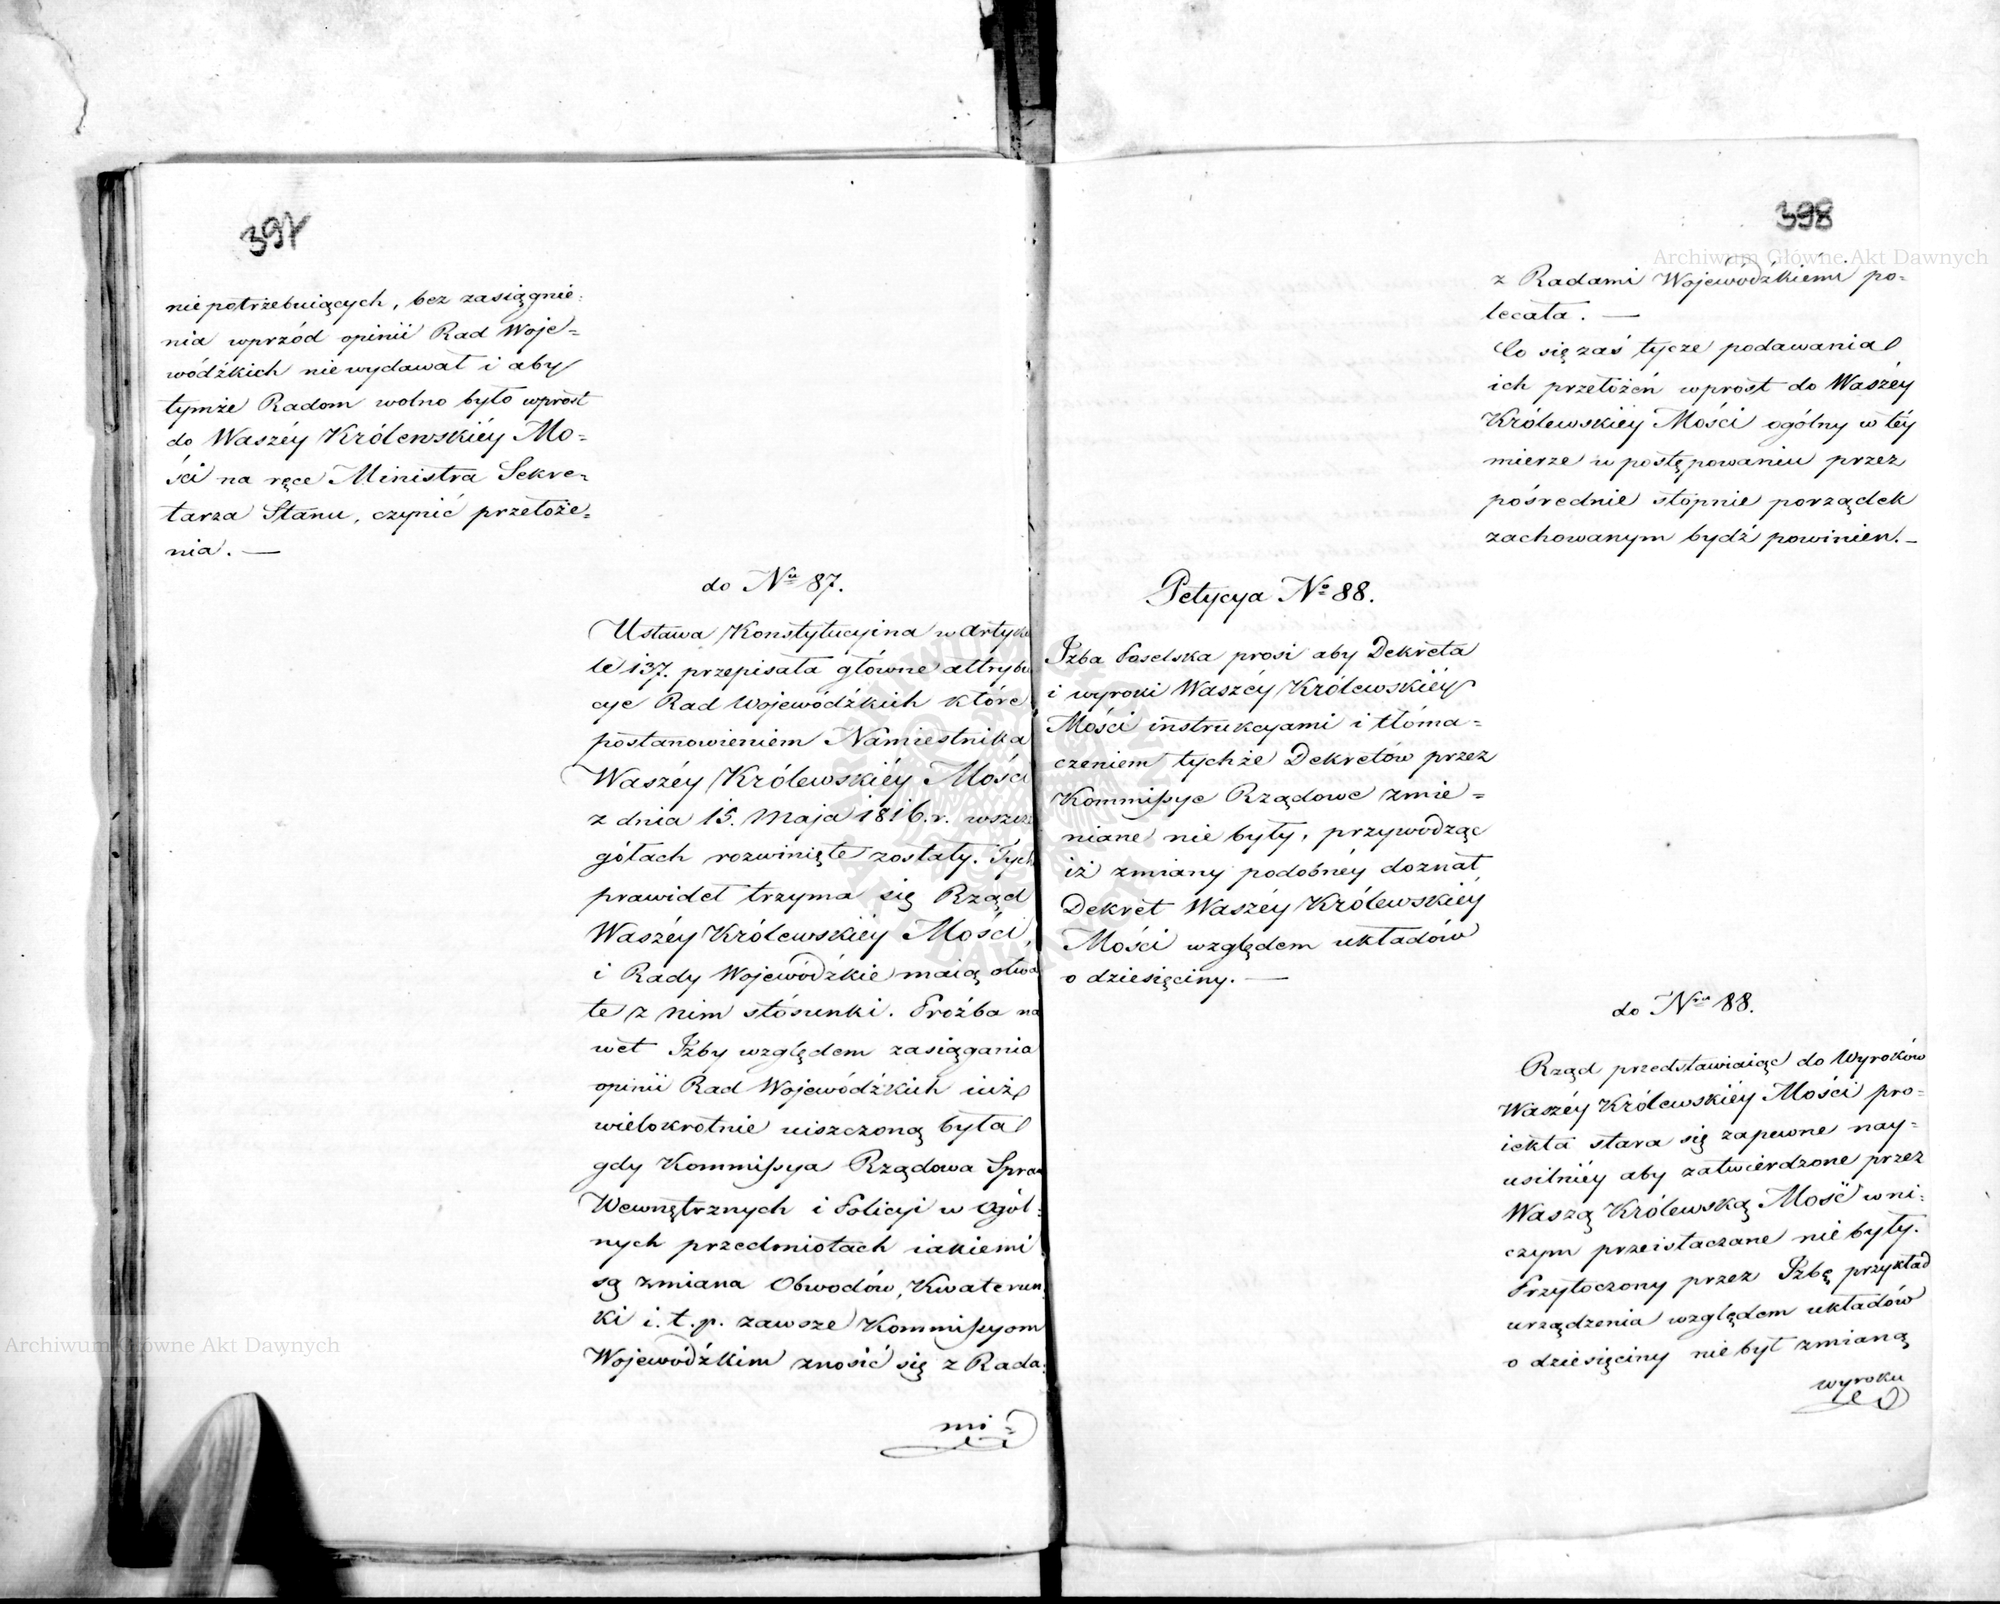 397
niepotrzebuiących, bez zasiągnie-
nia wprzód opinii Rad Woje-
wódźkich niewydawał i aby
tymże Radom wolno było wprost
do Waszéy Królewskiéy Mo-
ści na ręce Ministra Sekre-
tarza Stanu, czynić przełoże-
nia. —
do Nu 87.
Ustawa Konstytucyina w Artyku
le 137. przepisała główne attrybu
cye Rad Wojewódźkich które
postanowieniem Namiestnika
Waszéy Królewskiéy Mości
z dnia 15. Maja 1816. r. wszcze
gółach rozwinięte zostały. Tych
prawideł trzyma się Rząd
Waszéy Królewskiéy Mości,
i Rady Wojewódźkie maią otwa
te z nim stósunki. Proźba na
wet Izby względem zasiągania
opinii Rad Wojewódźkich iuż
wielokrotnie uiszczoną była
gdy Kommissya Rządowa Spraw
Wewnętrznych i Policyi w ogól-
nych przedmiotach iakiemi
są zmiana Obwodów, Kwaterun
ki i. t. p. zawsze Kommissyom
Wojewódźkim znosić się z Rada-
mi
398
Archiwum Główne Akt Dawnych
z Radami Wojewódźkiemi po-
lecała. —
Co się zaś tycze podawania
ich przełożeń wprost do Waszéy
Królewskiéy Mości ogólny w téy
mierze w postępowaniu przez
pośrednie stopnie porządek
zachowanym bydź powinien. —
Petycya No 88.
Izba Poselska prosi aby Dekreta
i wyroki Waszéy Królewskiéy
Mości instrukcyami i tłóma-
czeniem tychże Dekretów przez
Kommissye Rządowe zmie-
niane nie były, przywodząc
iż zmiany podobnéy doznał
Dekret Waszéy Królewskiéy
Mości względem układów
o dziesięciny. —
do Nru 88.
Rząd przedstawiaiąc do Wyroków
Waszéy Królewskiéy Mości pro-
iekta stara się zapewne nay-
usilniéy aby zatwierdzone przez
Waszą Królewską Mość w ni-
czym przeistaczane nie były.
Przytoczony przez Izbę przykład
urządzenia względem układów
o dziesięciny nie był zmianą
wyroku
Archiwum Główne Akt Dawnych